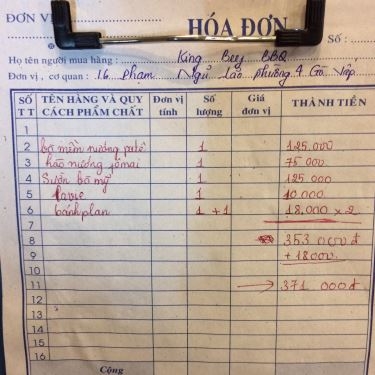 ĐƠN V
HÓA ĐƠN
Số :
Họ tên người mua hàng : King Bey BBQ
Đơn vị , cơ quan : 16 Phạm Ngũ Lão phường 4 Gò Vấp
SỐ TT TÊN HÀNG VÀ QUY CÁCH PHẨM CHẤT Đơn vị tính Số lượng Giá đơn vị THÀNH TIỀN
1
2 bò mềm nướng patê 1 125.000
3 hào nướng fômai 1 75 000
4 Sườn bò mỹ 1 125.000
5 lavie 1 10.000
6 bánhplan 1 + 1 18,000 × 2
7
8 353 000đ
9 + 18000
10
11 → 371 000đ
12
13
14
15
16
Cộng